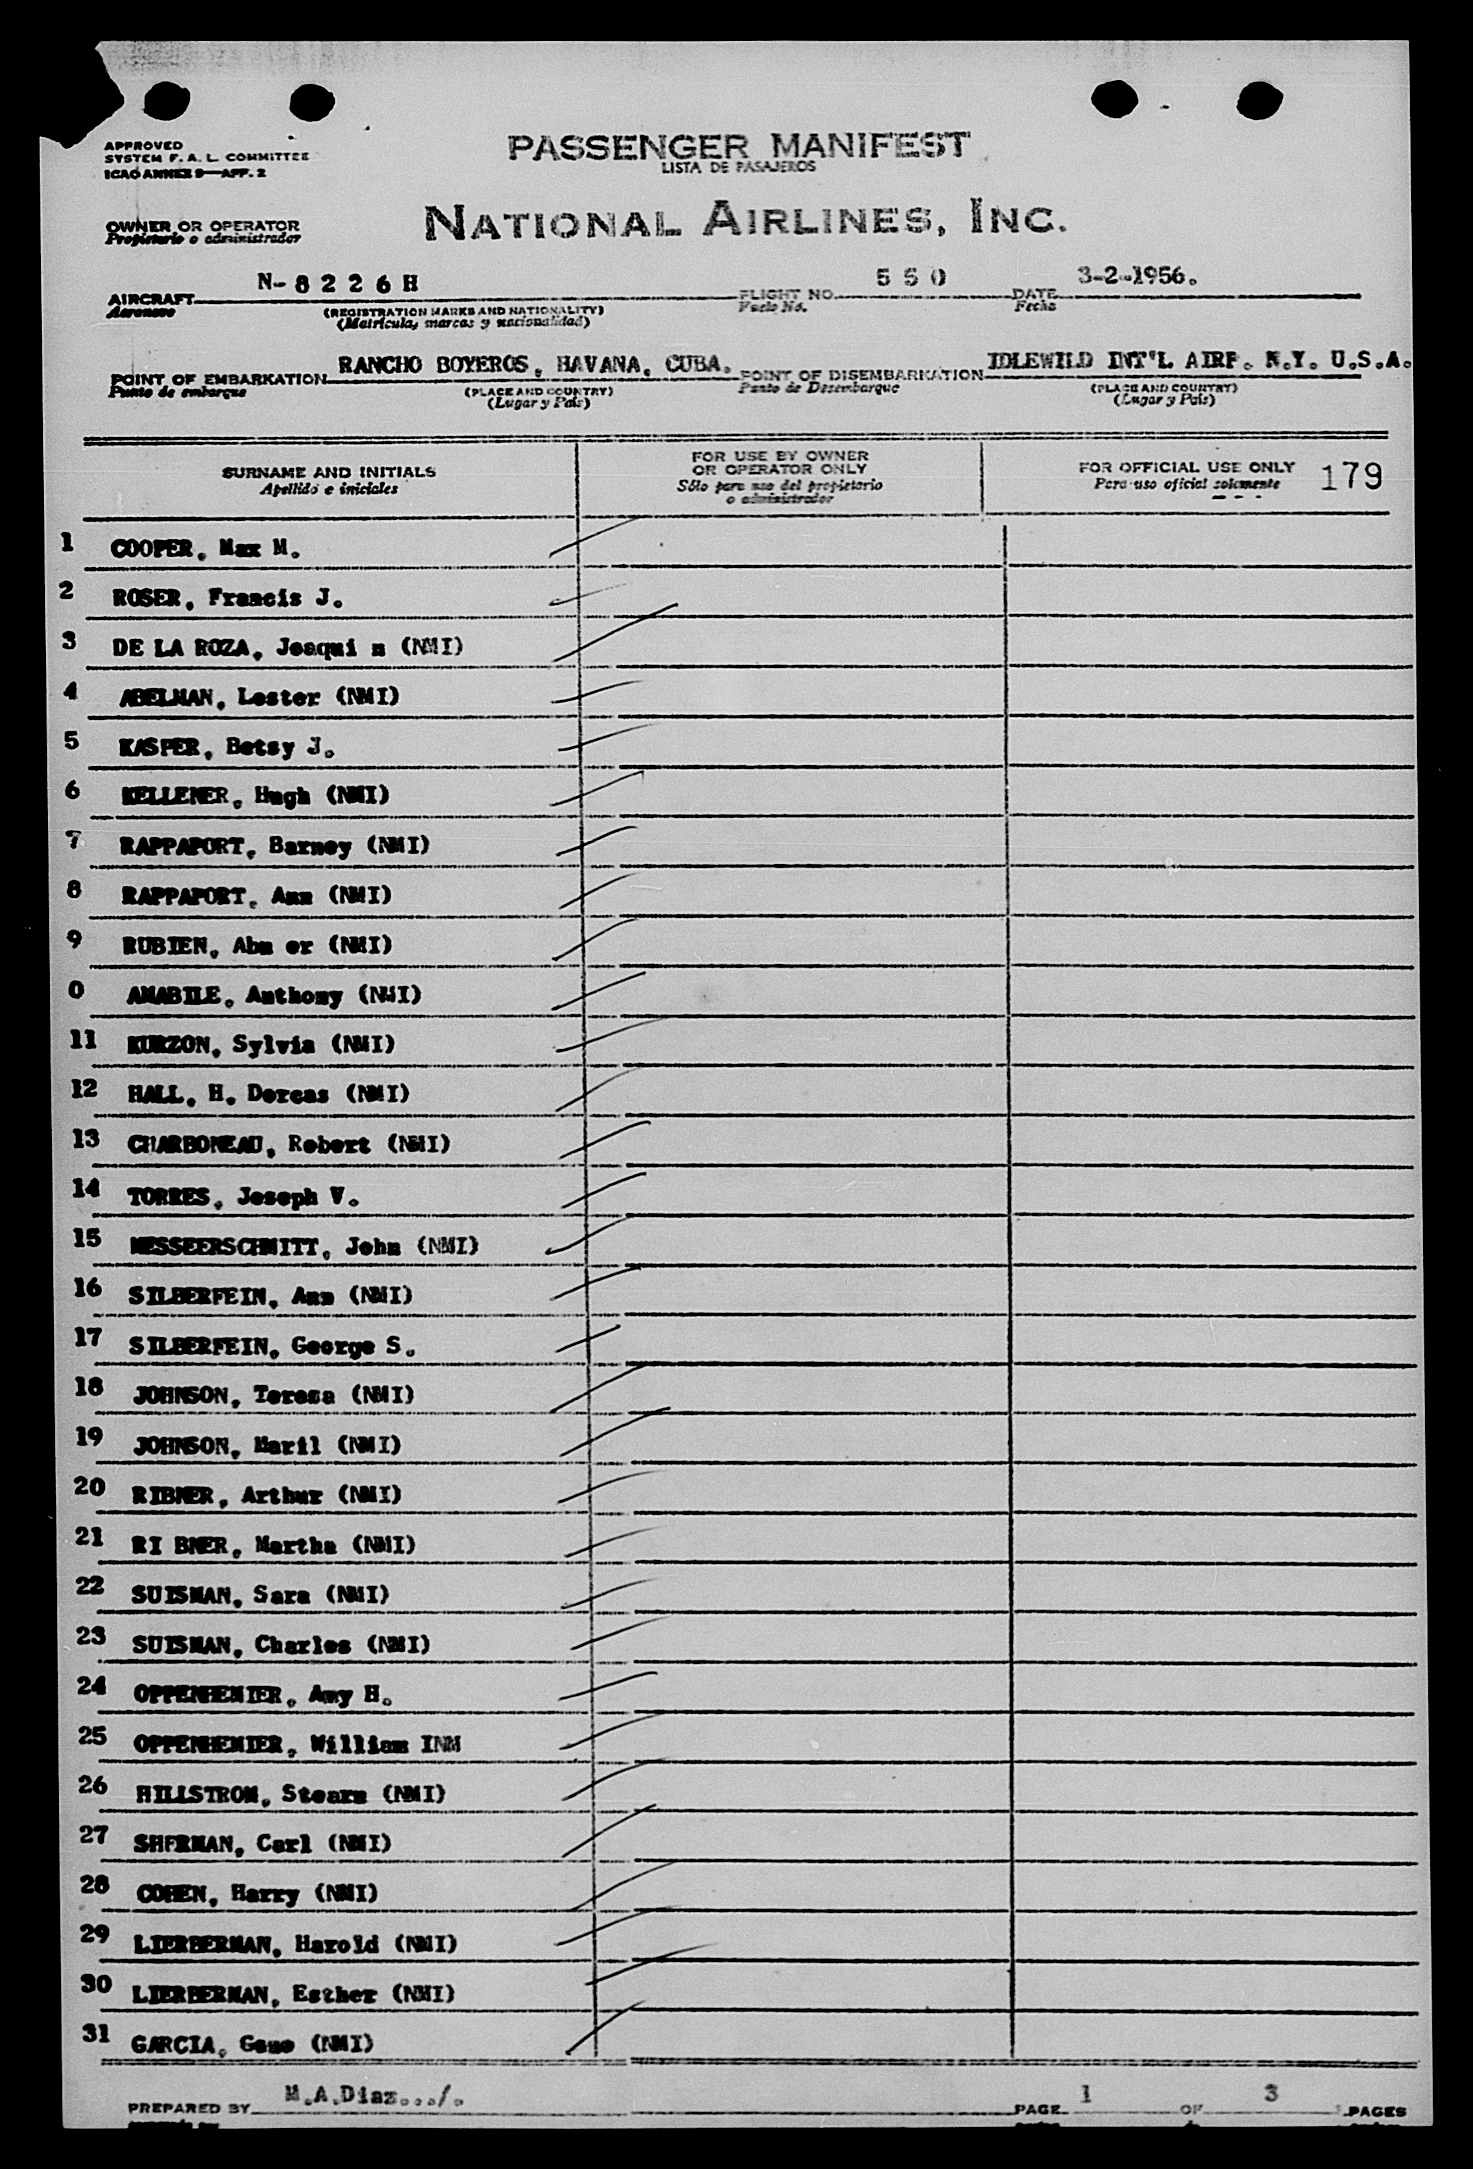 APPROVED
SYSTEM F. A. L. COMMITTEE
ICAO ANNEX 9—APP. 2
PASSENGER MANIFEST
LISTA DE PASAJEROS
OWNER OR OPERATOR
Propietario o administrador
NATIONAL AIRLINES, INC.
AIRCRAFT N- 8 2 2 6 H FLIGHT NO. 5 5 0 DATE 3-2-1956.
Aeronave (REGISTRATION MARKS AND NATIONALITY) Vuelo No. Fecha
(Matricula, marcas y nacionalidad)
POINT OF EMBARKATION RANCHO BOYEROS, HAVANA, CUBA. POINT OF DISEMBARKATION IDLEWILD INT'L AIRP. N.Y. U.S.A.
Punto de embarque (PLACE AND COUNTRY) Punto de Desembarque (PLACE AND COUNTRY)
(Lugar y País) (Lugar y País)
SURNAME AND INITIALS
Apellido e iniciales
FOR USE BY OWNER
OR OPERATOR ONLY
Sólo para uso del propietario
o administrador
FOR OFFICIAL USE ONLY 179
Para uso oficial solamente
1 COOPER, Max M.
2 ROSER, Francis J.
3 DE LA ROZA, Joaqui n (NMI)
4 ABELMAN, Lester (NMI)
5 KASPER, Betsy J.
6 KELLENER, Hugh (NMI)
7 RAPPAPORT, Barney (NMI)
8 RAPPAPORT, Ann (NMI)
9 RUBIEN, Abn er (NMI)
0 AMABILE, Anthony (NMI)
11 KURZON, Sylvia (NMI)
12 HALL, H. Dorcas (NMI)
13 CHARBONEAU, Robert (NMI)
14 TORRES, Joseph V.
15 MESSEERSCHMITT, John (NMI)
16 SILBERFEIN, Ann (NMI)
17 SILBERFEIN, George S.
18 JOHNSON, Teresa (NMI)
19 JOHNSON, Maril (NMI)
20 RIBNER, Arthur (NMI)
21 RI BNER, Martha (NMI)
22 SUISMAN, Sara (NMI)
23 SUISMAN, Charles (NMI)
24 OPPENHEMIER, Amy H.
25 OPPENHEMIER, William INM
26 HILLSTROM, Stearn (NMI)
27 SHERMAN, Carl (NMI)
28 COHEN, Harry (NMI)
29 LIERBERMAN, Harold (NMI)
30 LIERBERMAN, Esther (NMI)
31 GARCIA, Gene (NMI)
PREPARED BY M.A.Diaz.../. PAGE 1 OF 3 PAGES